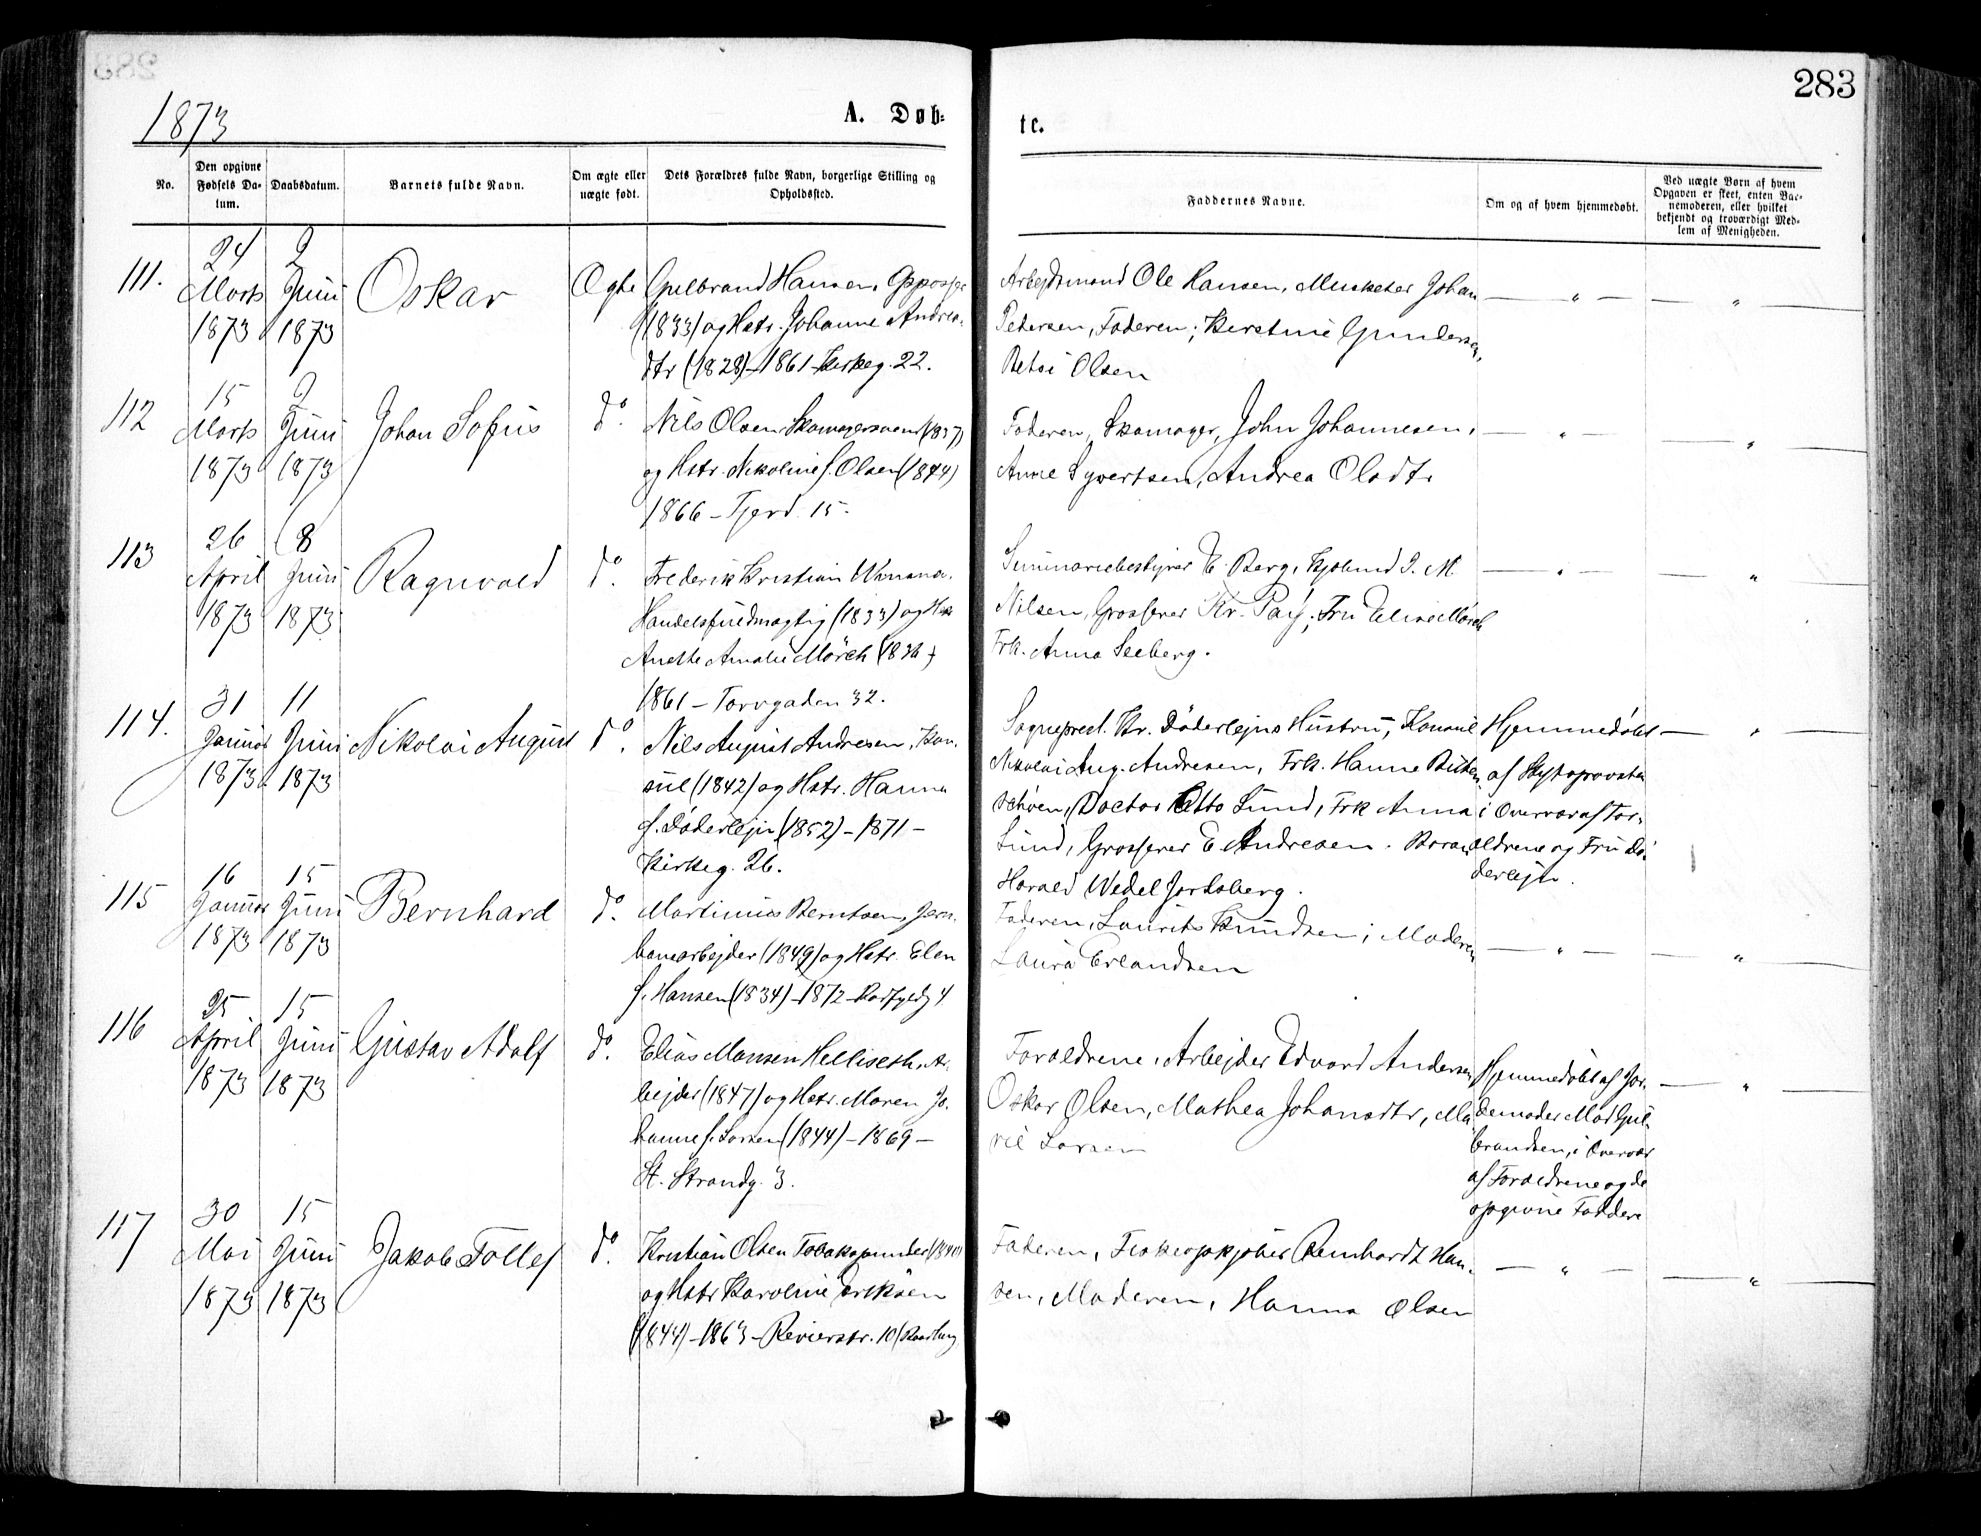 283
1873
A. Døb-
te.
No.
Den opgivne
Fødsels Da-
tum.
Daabsdatum.
Barnets fulde Navn.
Om ægte eller
uægte født.
Dets Forældres fulde Navn, borgerlige Stilling og
Opholdssted.
Faddernes Navne.
Om og af hvem hjemmedøbt.
Ved uægte Børn af hvem
Opgaven er skeet, enten Bar-
nemoderen, eller hvilket
bekjendt og troværdigt Med-
lem af Menigheden.
111.
24
Marts
1873
2
Juni
1873
Oskar
Ægte
Gulbrand Hansen,
(1833) og Hstr. Johanne Andrea-
dtr (1828) – 1861 Kirkeg. 22.
Arbejdsmand Ole Hansen, Musketer Johan
Pedersen, Faderen; Kirstine Gundersen,
Olsen
— " —
— " —
112
15
Marts
1873
2
Juni
1873
Johan Sofus
do.
Nils Olsen Skomagersvend (1837)
og Hstr. Nikoline f. Olsen (1844)
1866 – Fjerd. 15.
Faderen, Skomager, John Johannesen,
Anne Syvertsen, Andrea Olsdtr
— " —
"
113
26
April
1873
8
Juni
1873
Ragnvald
do.
Frederik Kristian
Handelsfuldmægtig (1833) og Hstr
Anette Amalie Mörch (1836)
1861 – Torvgaden 32.
Seminariebestyrer E. Berg, Kjøbmd J. M.
Nilsen, Grosserer Kr. Pay; Fru Elise Mörch
Frk. Anna Seeberg.
— " —
"
114.
31
Januar
1873
11
Juni
1873
Nikolai August
do.
Nils August Andresen, Kon-
sul (1842) og Hstr. Hanna
f. Döderlejn (1852) – 1871 –
Kirkeg. 26.
Sognepræst Kr. Döderlejns Hustru, Konsul
Nikolai Aug. Andresen, Frk. Hanne
Doctor Otto Lund, Frk Anna
Lund, Grosserer E Andresen. Baron
Harald Wedel Jarlsberg.
Hjemmedøbt
af Stiftsprovsten
i Overvær af For-
ældrene og Fru Dö-
derlejn.
— " —
115
16
Januar
1873
15
Juni
1873
Bernhard
do.
Martinius Berntsen, Jern-
banearbejder (1849) og Hstr. Elen
f. Hansen (1834) – 1872 –
Faderen, Laurits Knudsen; Moderen
Laura Erlandsen
— " —
— " —
116
25
April
1873
15
Juni
1873
Gustav Adolf
do.
Elias Monsen Helliseth, Ar-
bejder (1847) og Hstr. Maren Jo-
hanne f. Larsen (1844) – 1869 –
St. Strandg. 3.
Forældrene, Arbejder Edvard Andersen
Oskar Olsen, Mathea Johansdtr,
Larsen
Hjemmedøbt af Jor-
demoder Mad Gul-
brandsen, i Overvær
af Forældrene og de
opgivne Faddere
— " —
117
30
Mai
1873
15
Juni
1873
Jakob Tollef
do.
Kristian Olsen Tobakspinder
og Hstr Karoline Eriksen
(1844) – 1863 – Revierstr. 10
Faderen, Reinhardt Han-
sen, Moderen, Hanna Olsen
— " —
— " —